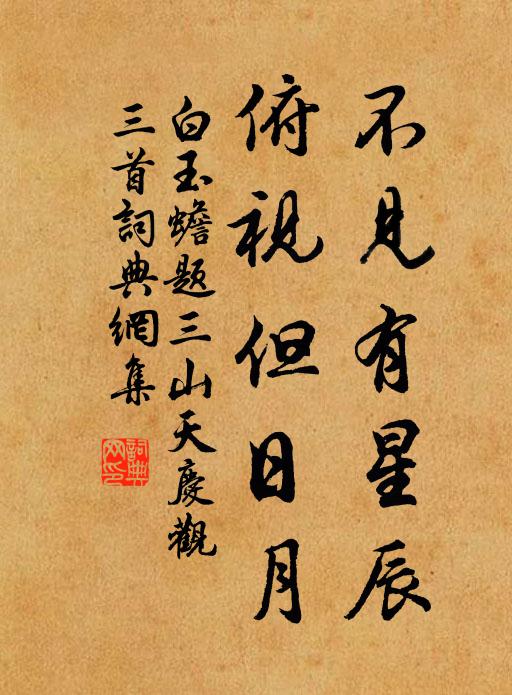 不見有星辰
俯視但日月
白玉蟾題三山天慶觀
三首詞典網集
詞典網印